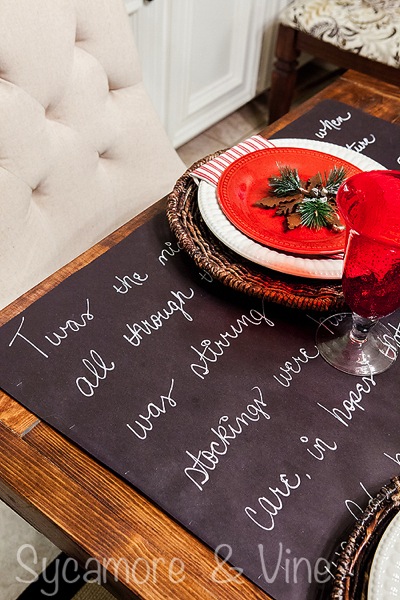 Twas the ni when
all through t ture
was stirring
stockings were
care, in hopes that
Sycamore & Vine